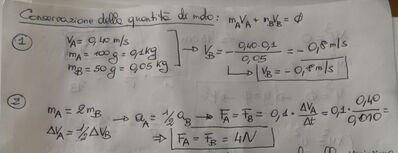 Conservazione della quantità di moto: mAVA + mBVB = ∅
① VA = 0,40 m/s
mA = 100 g = 0,1 kg
mB = 50 g = 0,05 kg
→ VB = - 0,40·0,1 / 0,05 = - 0,8 m/s
↳ VB = - 0,8 m/s
② mA = 2mB
ΔVA = 1/2 ΔVB
→ aA = 1/2 aB → FA = FB = 0,1 · ΔVA/Δt = 0,1 · 0,40/0,010 =
⇒ FA = FB = 4N